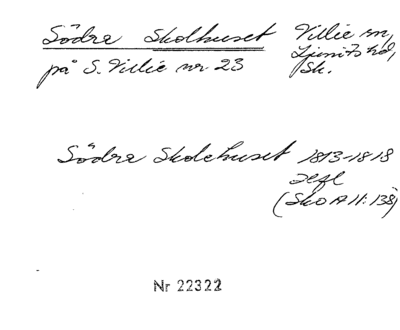 Södra Skolhuset Villie sn,
Ljunits hd,
på S. Villie nr 23 Sk.
Södra Skolehuset 1813-1818
(Sko A II: 138)
Nr 22322